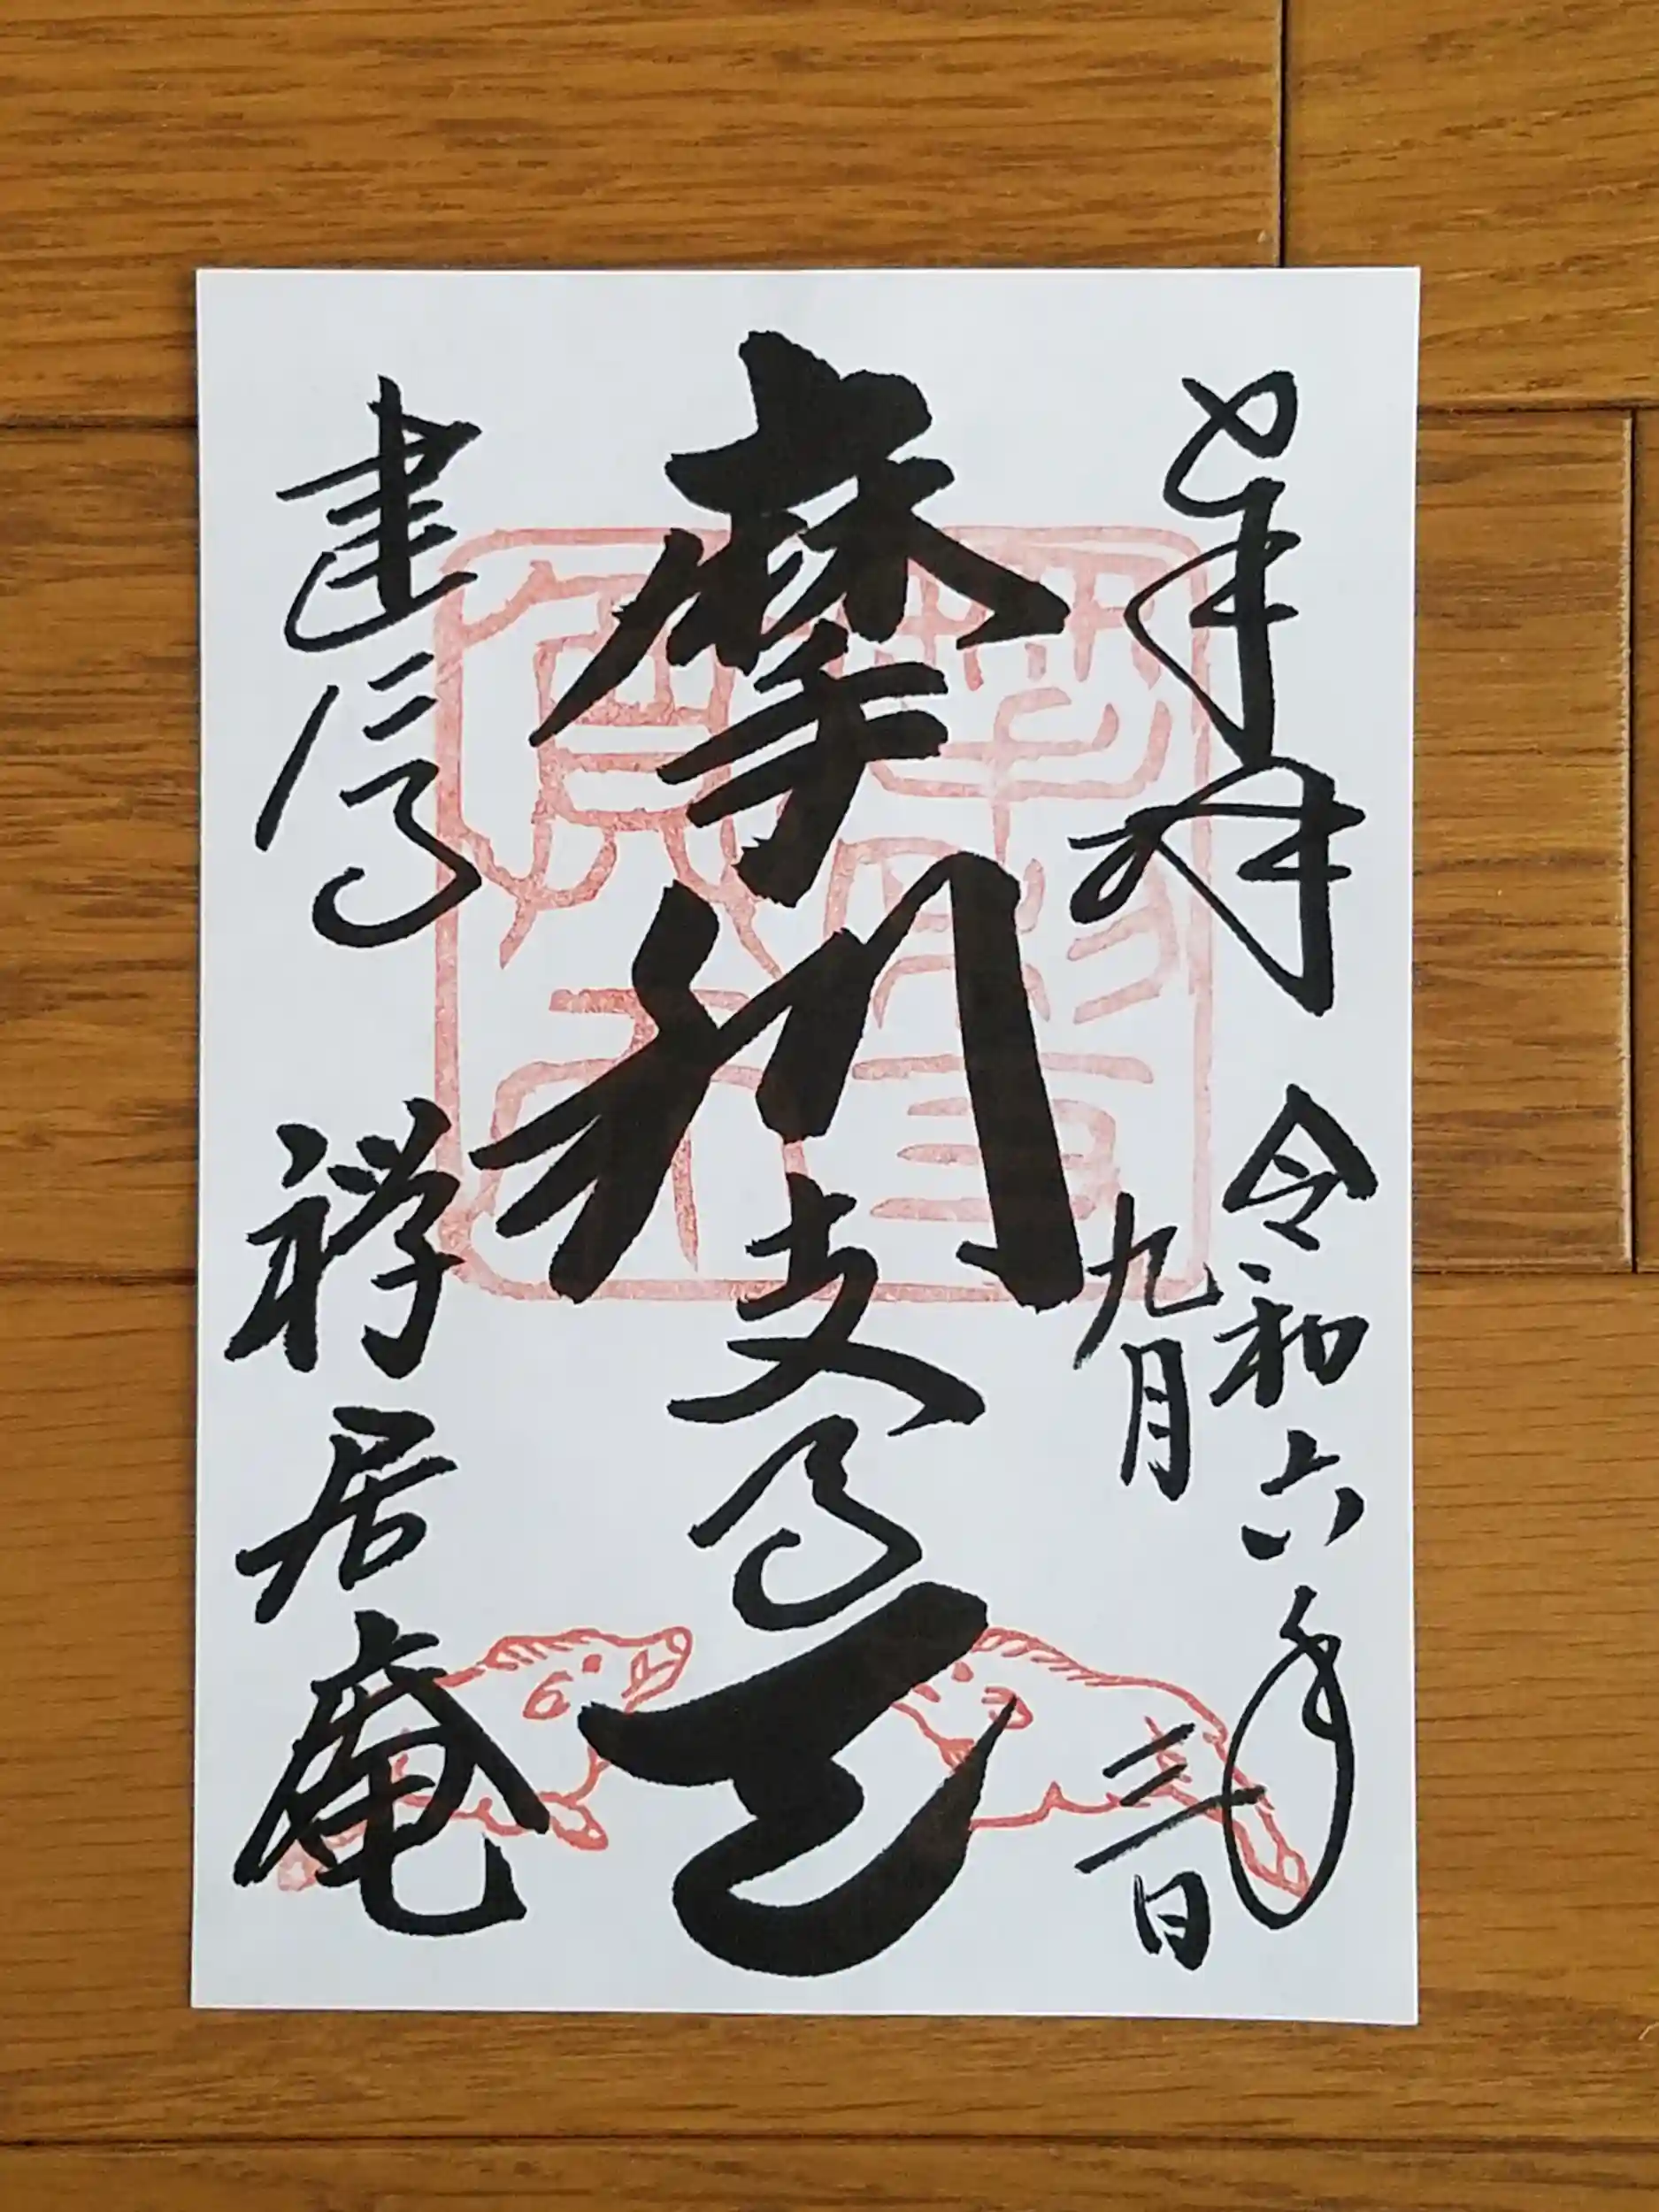 奉拝 令和六年
九月三日
摩利支尊天
建仁寺 禅居庵